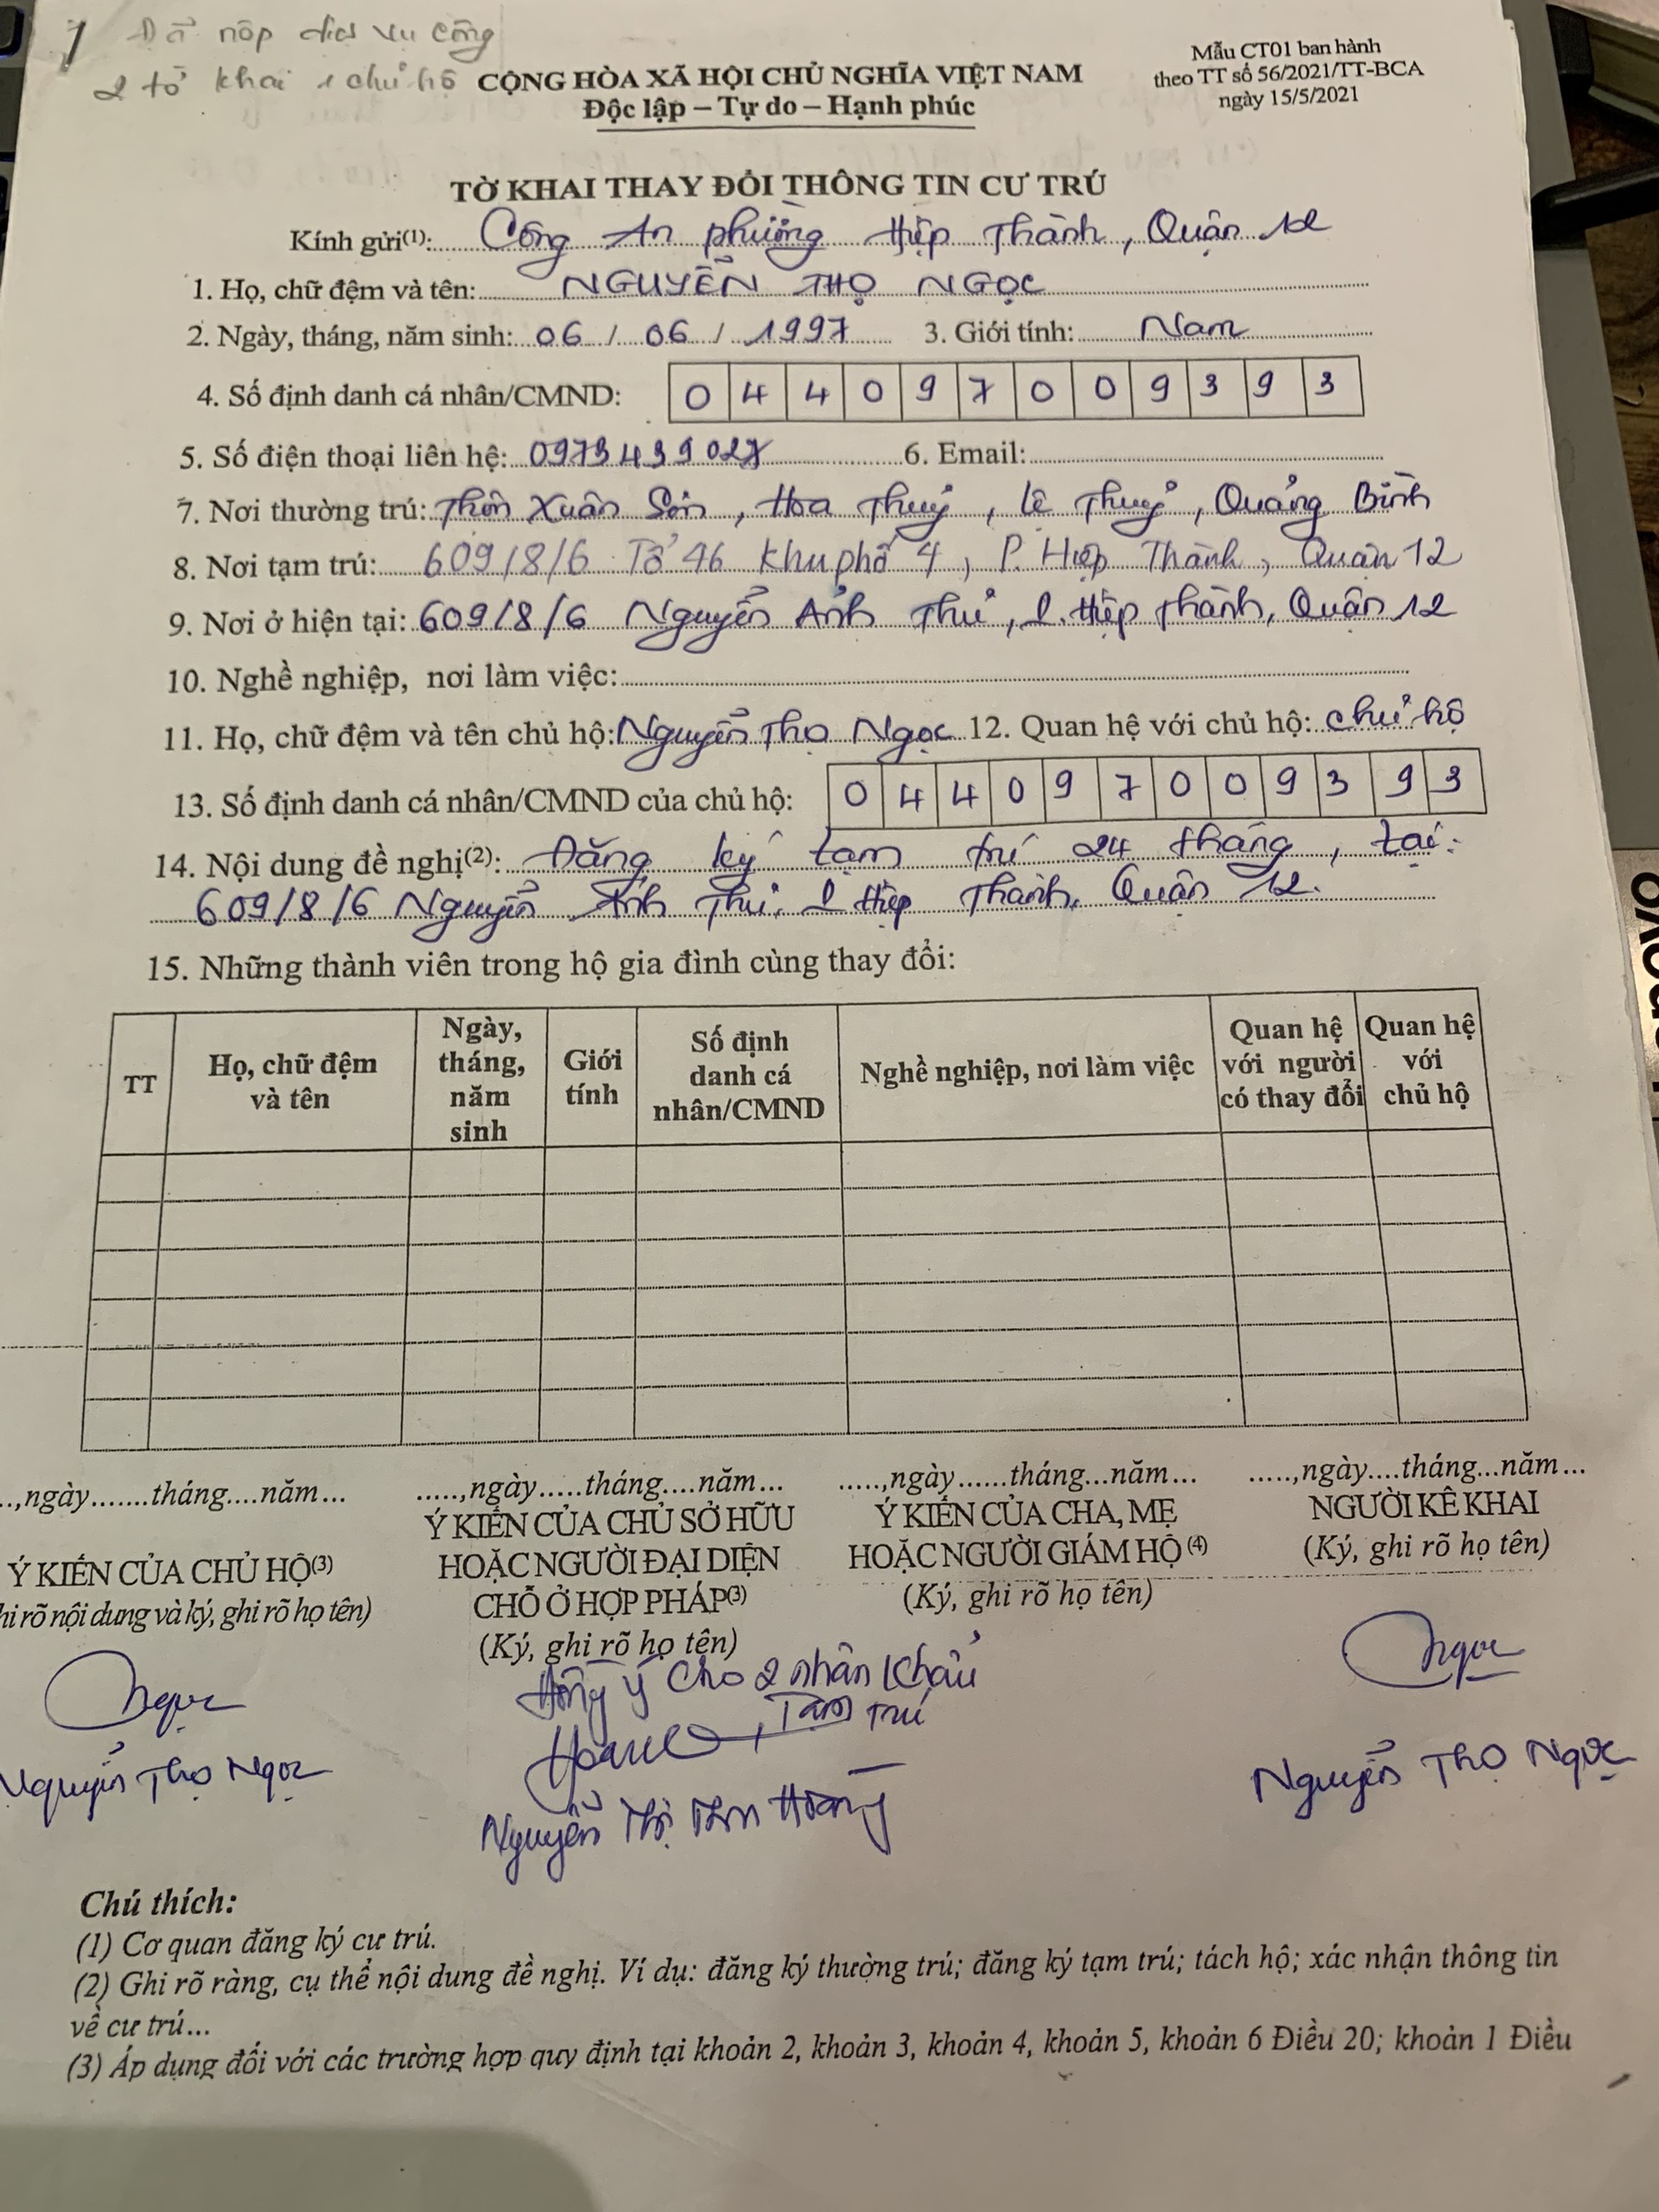 1 Đã nộp dịch vụ công
2 tờ khai 1 chủ hộ
Mẫu CT01 ban hành
theo TT số 56/2021/TT-BCA
ngày 15/5/2021
CỘNG HÒA XÃ HỘI CHỦ NGHĨA VIỆT NAM
Độc lập – Tự do – Hạnh phúc
TỜ KHAI THAY ĐỔI THÔNG TIN CƯ TRÚ
Kính gửi(1): Công An phường Hiệp Thành, Quận 12
1. Họ, chữ đệm và tên: NGUYỄN THỌ NGỌC
2. Ngày, tháng, năm sinh: 06 / 06 / 1997 3. Giới tính: Nam
4. Số định danh cá nhân/CMND: 0 4 4 0 9 7 0 0 9 3 9 3
5. Số điện thoại liên hệ: 0973439027 6. Email:
7. Nơi thường trú: Thôn Xuân Sơn, Hoa Thuỷ, Lệ Thuỷ, Quảng Bình
8. Nơi tạm trú: 609/8/6 Tổ 46 Khu phố 4, P. Hiệp Thành, Quận 12
9. Nơi ở hiện tại: 609/8/6 Nguyễn Ảnh Thủ, P. Hiệp Thành, Quận 12
10. Nghề nghiệp, nơi làm việc:
11. Họ, chữ đệm và tên chủ hộ: Nguyễn Thọ Ngọc 12. Quan hệ với chủ hộ: chủ hộ
13. Số định danh cá nhân/CMND của chủ hộ: 0 4 4 0 9 7 0 0 9 3 9 3
14. Nội dung đề nghị(2): Đăng ký tạm trú 24 tháng, tại:
609/8/6 Nguyễn Ảnh Thủ, P Hiệp Thành, Quận 12.
15. Những thành viên trong hộ gia đình cùng thay đổi:
TT Họ, chữ đệm và tên Ngày, tháng, năm sinh Giới tính Số định danh cá nhân/CMND Nghề nghiệp, nơi làm việc Quan hệ với người có thay đổi Quan hệ với chủ hộ
..,ngày.......tháng....năm... .....,ngày.....tháng....năm... .....,ngày......tháng...năm... .....,ngày....tháng...năm...
Ý KIẾN CỦA CHỦ HỘ(3)
hi rõ nội dung và ký, ghi rõ họ tên)
Ngọc
Nguyễn Thọ Ngọc
Ý KIẾN CỦA CHỦ SỞ HỮU
HOẶC NGƯỜI ĐẠI DIỆN
CHỖ Ở HỢP PHÁP(3)
(Ký, ghi rõ họ tên)
Đồng ý cho 2 nhân khẩu
Tạm Trú
Nguyễn Thị Hoàng
Ý KIẾN CỦA CHA, MẸ
HOẶC NGƯỜI GIÁM HỘ (4)
(Ký, ghi rõ họ tên)
NGƯỜI KÊ KHAI
(Ký, ghi rõ họ tên)
Ngọc
Nguyễn Thọ Ngọc
Chú thích:
(1) Cơ quan đăng ký cư trú.
(2) Ghi rõ ràng, cụ thể nội dung đề nghị. Ví dụ: đăng ký thường trú; đăng ký tạm trú; tách hộ; xác nhận thông tin
về cư trú...
(3) Áp dụng đối với các trường hợp quy định tại khoản 2, khoản 3, khoản 4, khoản 5, khoản 6 Điều 20; khoản 1 Điều